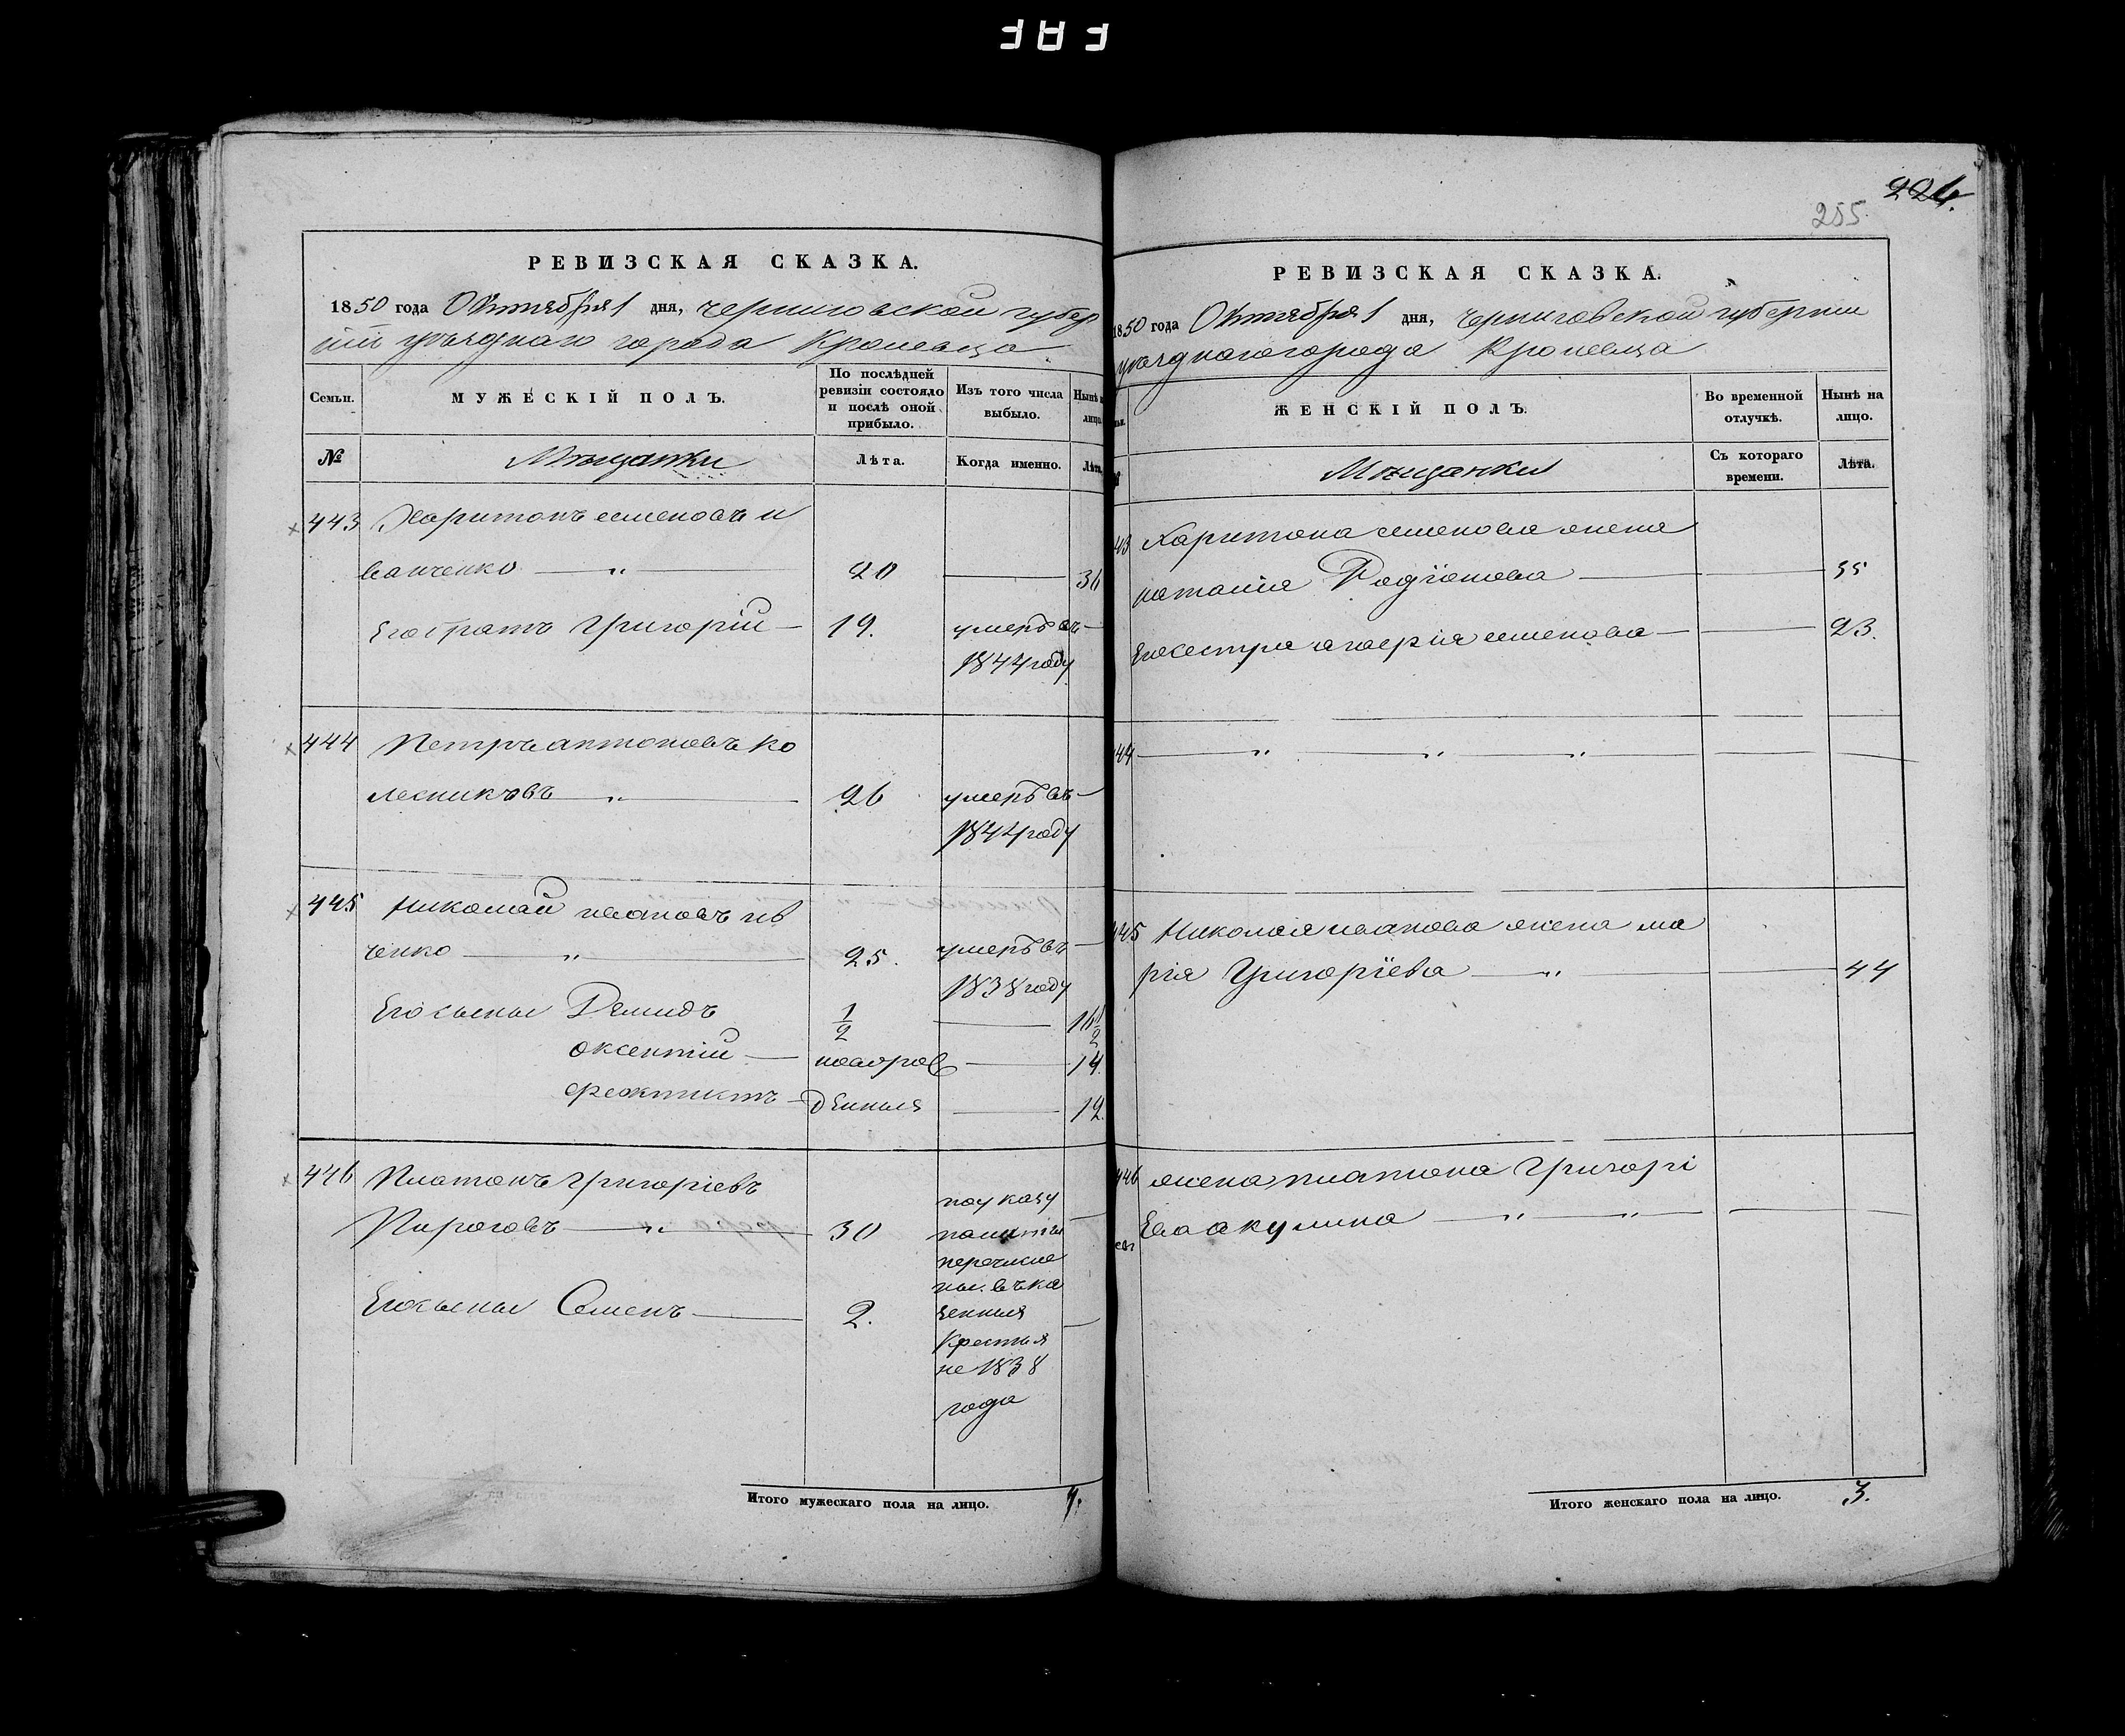 FAF
224.
255
РЕВИЗСКАЯ СКАЗКА.
1850 года Октября 1 дня, Черниговской губер
ніи уѣзднаго города Кролевца
Семьи.
МУЖЕСКІЙ ПОЛЪ.
По послѣдней ревизіи состояло и послѣ оной прибыло.
Изъ того числа выбыло.
Нынѣ на лицо.
№
Мѣщанки
Лѣта.
Когда именно.
Лѣта.
443 Харитонъ семеновъ и
ванченко — „ — 20 — 36
Его братъ Григорій — 19. умеръ въ —
1844 году
444 Петръ антоновъ ко
лесниковъ — „ — 26 умеръ въ —
1844 году
445 Николай ивановъ ив
ченко — „ — 25. умеръ въ —
1838 году
Его сыны Демидъ 1/2 — 16 1/2
оксентій — новорож — 14.
феоктистъ — денныя — 12.
446 Платонъ Григоріевъ
Пироговъ — „ — 30
Его сыны Семенъ — 2.
по указу
палаты
перечисле
ны въ ка
зенныя
Крестья
не 1838
года
Итого мужескаго пола на лицо. 4.
РЕВИЗСКАЯ СКАЗКА.
1850 года Октября 1 дня, Черниговской губерніи
уѣзднаго города Кролевца
ЖЕНСКІЙ ПОЛЪ.
Во временной отлучкѣ.
Нынѣ на лицо.
Мѣщанки
Съ котораго времени.
Лѣта.
43 Харитона семенова жена
наталія Родіонова — — 35
Его сестра агафія семенова — — 23.
444 — „ — „ — „ — — —
445 Николая иванова жена ма
рія Григоріева — „ — — 44
446 жена платона Григорі
Ева акулина — „ — „ — — —
Итого женскаго пола на лицо. 3.